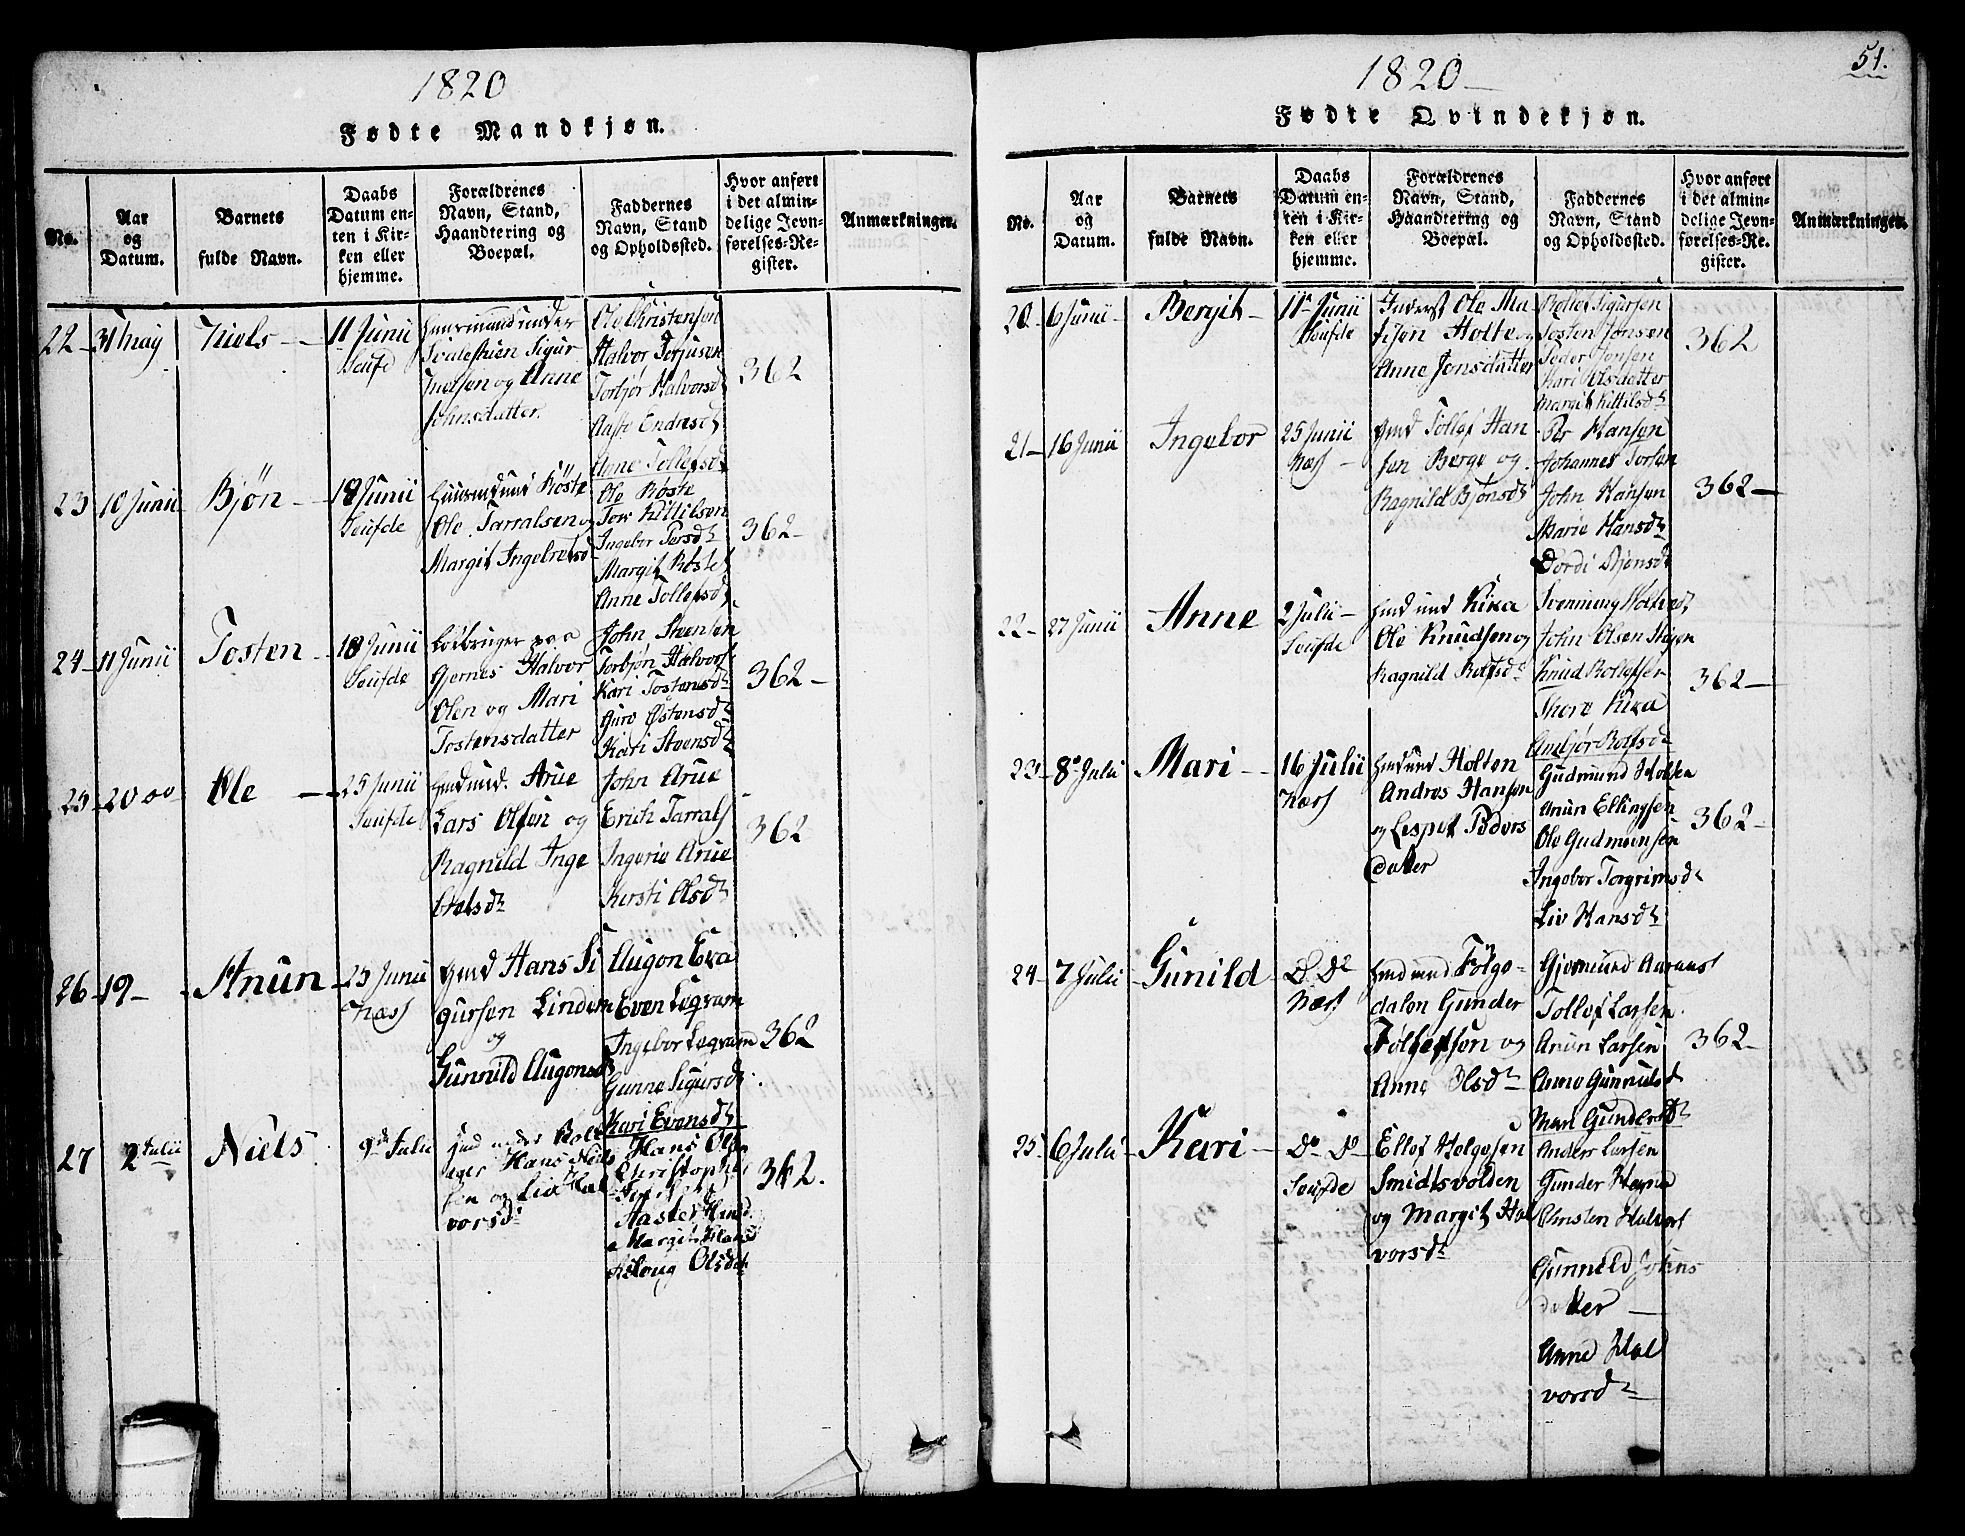 1820
Fødte Mandkjøn.
No.
Aar
og
Datum.
Barnets
fulde Navn.
Daabs
Datum en-
ten i Kir-
ken eller
hjemme.
Forældrenes
Navn, Stand,
Haandtering og
Boepæl.
Faddernes
Navn, Stand
og Opholdssted.
Hvor anført
i det almin-
delige Jevn-
førelses-Re-
gister.
Anmærkninger.
22 31 May Niels 11 Junii
Seufde
Huusmand under
Sigur
Nielsen og Anne
Johnsdatter
Ole Christensen
Halvor Torjusen
Torbjør Halvorsd
Aaste Endresd
Anne Tollefsd
362
23 10 Junii Bjøn 18 Junii
Seufde
Huusmd und Røste
Ole Tarralsen og
Margit Ingebretsd
Ole Røste
Tov Kittilsen
Ingebor Persdr
Margit Røste
Anne Tollefsd
362
24 11 Junii Tosten 18 Junii
Seufde
Leilbruger paa
Gjernes Halvor
Olsen og Mari
Tostensdatter
John Steensen
Torbjøn Halvors
Kari Tostensdr
Guro Østensdr
Kari Steensdr
362
25 20 Ole 25 Junii
Seufde
Hmd und. Arue
Lars Olsen og
Ragnild Inge
bretsdr
John Arue
Erich Tarrals
Ingerie Arue
Kersti Olsdr
362
26 19 Anun 25 Junii
Næss
Hmd Hans Si
gursen Lindem
og
Gunnild Augonsdr
Augon Eka
Even Lugrum
Ingebor Lugrum
Gunne Sigursdr
Kari Evensdr
362
27 2 Julii Niels 9de Julii
Hmd under
Hans Niels
sen og Liv Hal
vorsdr
Hans Ols
Christopher
Aaste Hansd
Margit Hansd
Asloug Olsdr
362.
1820
51.
Fødte Qvindekjøn.
No.
Aar
og
Datum.
Barnets
fulde Navn.
Daabs
Datum en-
ten i Kir-
ken eller
hjemme.
Forældrenes
Navn, Stand,
Haandtering og
Boepæl.
Faddernes
Navn, Stand
og Opholdssted.
Hvor anført
i det almin-
delige Jevn-
førelses-Re-
gister.
Anmærkninger.
20 6 Junii Bergit 11 Junii
Seufde
Inderst Ole Ma
tisøn Holte og
Anne Jensdatter
Rollef Sigursen
Tosten Jonsen
Peder Jonsen
Kari Olsdatter
Margit Kittilsdr
362
21 16 Junii Ingebor 25 Junii
Næss
Hmd Tollef Han
sen Berge og
Ragnild Bjønsdr
Per Hansen
Johannes Torsen
John Hansen
Marie Hansdr
Dordi Bjønsdr
362
22 27 Junii Anne 2 Julii
Seufde
Hmd und Kika
Ole Knudsen og
Ragnild Rolfsdr
Svenning Holte
John Olsen Stigen
Knud Rollefsen
Thore Kika
Anbjør Rolfsdr
362
23 8 Julii Mari 16 Julii
Næss
Hmd und Holten
Andres Hansøn
og Lespet Peders
datter
Gudmund Holten
Anun Ellingsen
Ole Gudmunsen
Ingebor Torgrimsdr
Liv Hansdr
362
24 7 Julii Gunild Do Do
Næss
Hmd und Følge
dalen Gunder
Tollefsøn og
Anne Olsdr
Gjermund Aarnes
Tollef Larsen
Anun Larsen
Anne Gunnulsd
Mari Gundersdr
362
25 6 Julii Kari Do Do
Seufde
Ellef Helgesen
Smidtsvolden
og Margit Hal
vorsdr
Anders Larsen
Gunder Hegna
Christen Halvors
Gunneld Johns
datter
Anne Hal
vorsdr